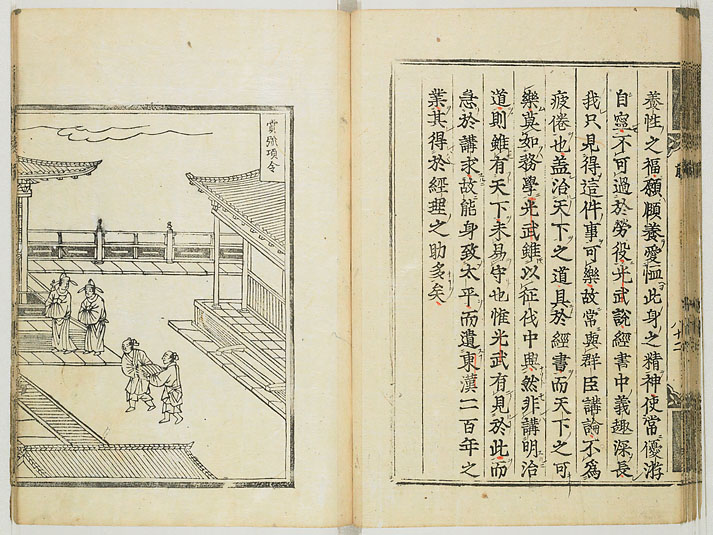 養性之福願頤養愛恤此身之精神使常優游
自寧不可過於勞役光武說經書中義趣深長
我只見得這件事可樂故常與群臣講論不爲
疲倦也蓋治天下之道具於經書而天下之可
樂莫如務學光武雖以征伐中興然非講明治
道則雖有天下未易守也惟光武有見於此而
急於講求故能身致太平而遺東漢二百年之
業其得於經理之助多矣
賞強項令